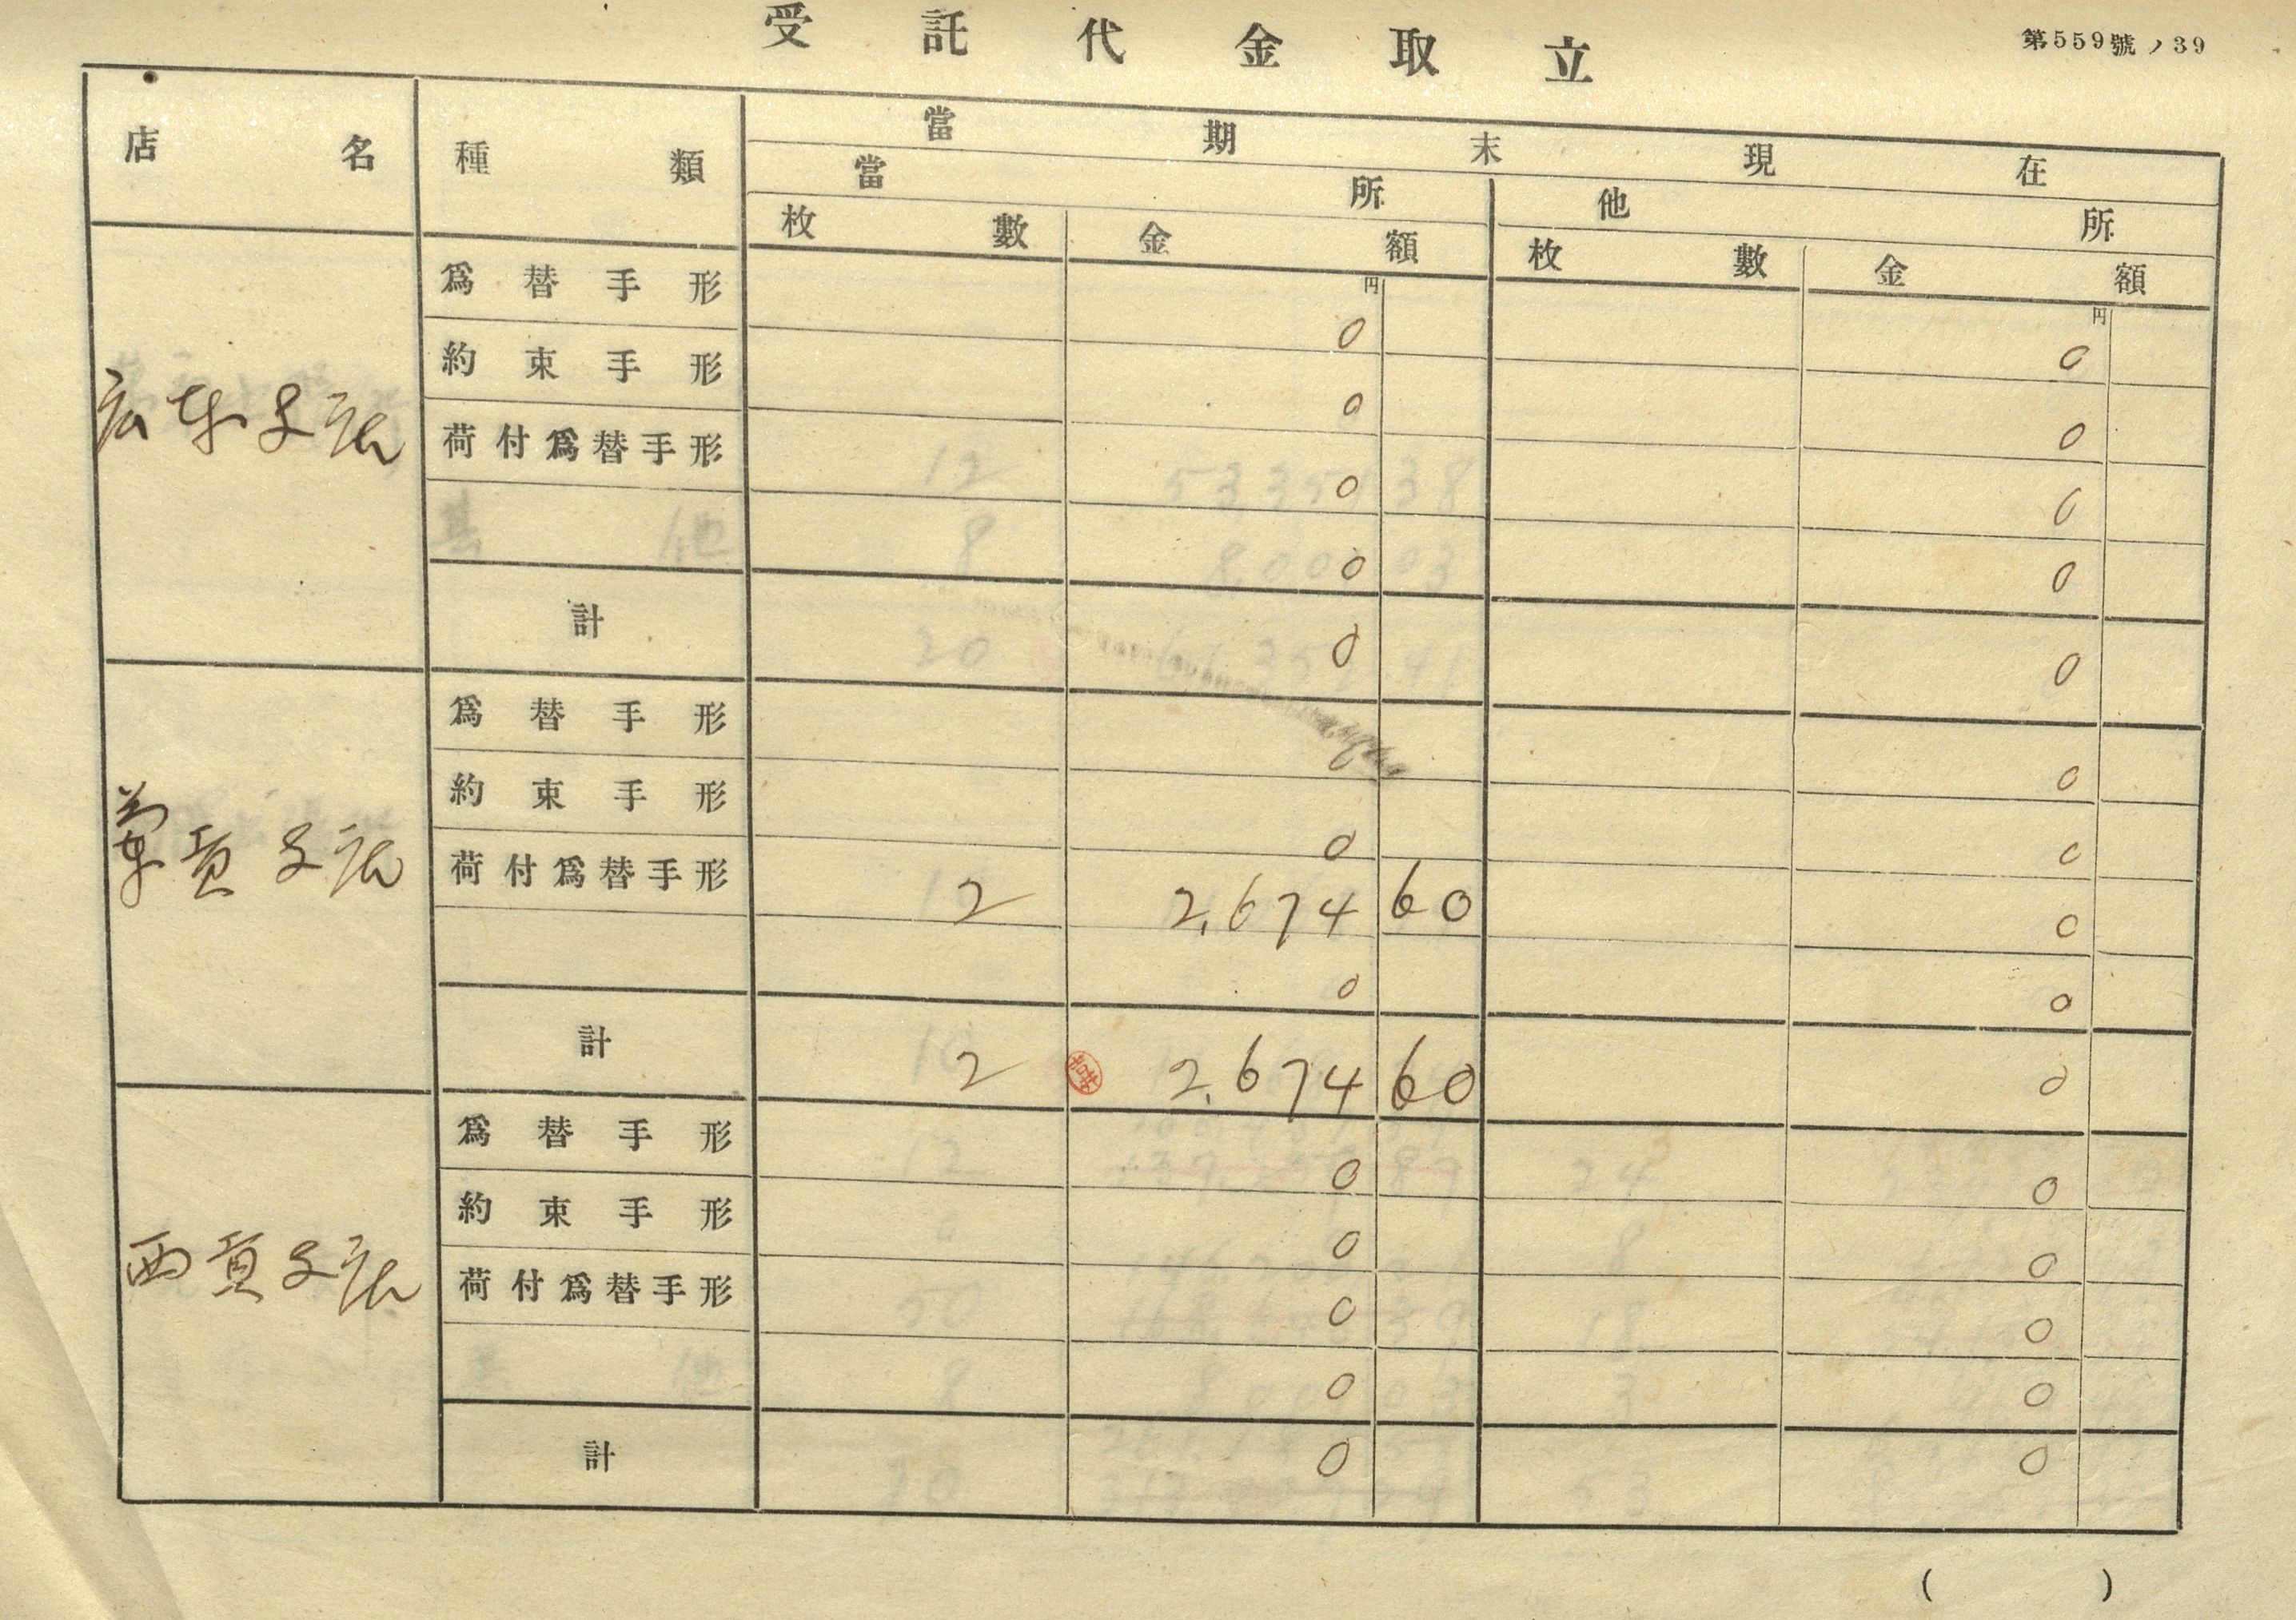 受託代金取立
第559號ノ39
店名 種類 當期末現在
當所 他所
枚數 金額 枚數 金額
円 円
広東支店
爲替手形 0 0
約束手形 0 0
荷付爲替手形 0 0
0 0
計 0 0
支店
爲替手形 0 0
約束手形 0 0
荷付爲替手形 2 2,674 60 0
0 0
計 2 2,674 60 0
西貢支店
爲替手形 0 0
約束手形 0 0
荷付爲替手形 0 0
0 0
計 0 0
( )